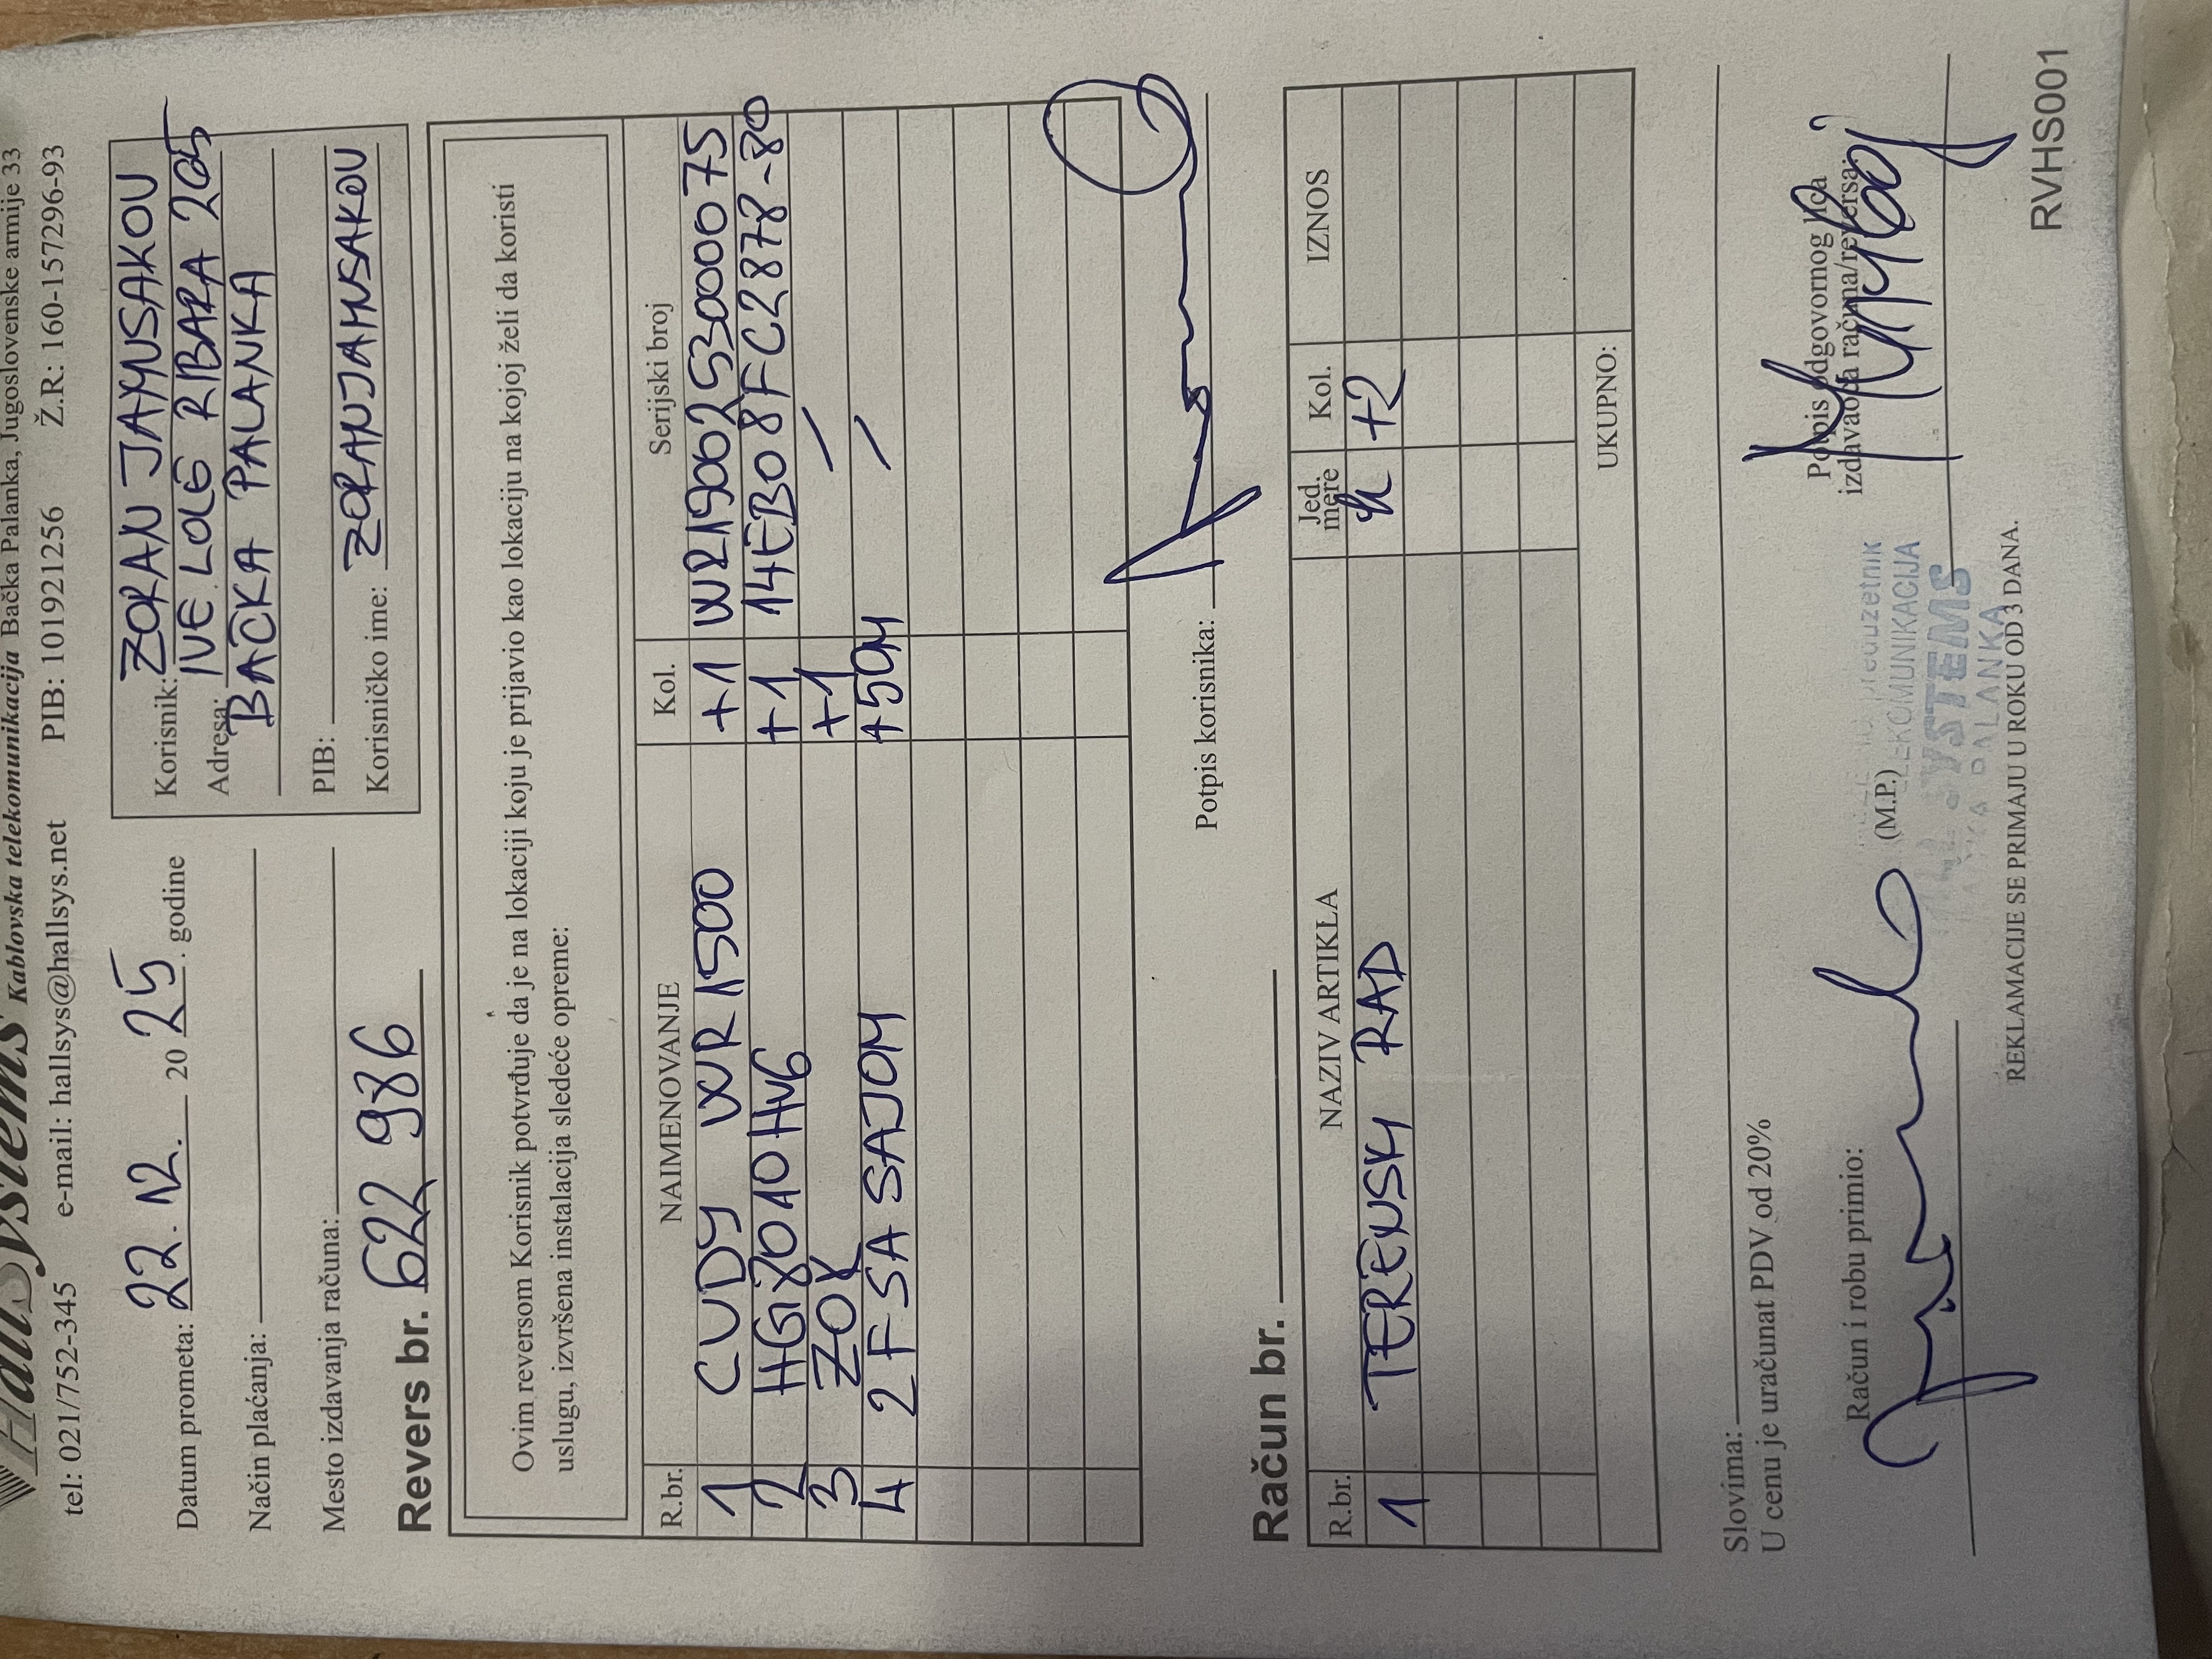 HallSystems Kablovska telekomunikacija Bačka Palanka, Jugoslovenske armije 33
tel: 021/752-345 e-mail: hallsys@hallsys.net PIB: 101921256 Ž.R: 160-157296-93
Datum prometa: 22. 12. 20 25. godine
Način plaćanja:
Mesto izdavanja računa:
Korisnik: ZORAN JAHNSAKOV
Adresa: IVE LOLE RIBARA 205
BAČKA PALANKA
PIB:
Korisničko ime: ZORANJAHNSAKOV
Revers br. 622 986
Ovim reversom Korisnik potvrđuje da je na lokaciji koju je prijavio kao lokaciju na kojoj želi da koristi
uslugu, izvršena instalacija sledeće opreme:
R.br. NAIMENOVANJE Kol. Serijski broj
1 CUDY WR 1500 +1 WR1900253000075
2 HG8010HV6 +1 14EB08FC2878-80
3 ZOK +1 /
4 2F SA SAJOM +50M /
Potpis korisnika:
Račun br.
R.br. NAZIV ARTIKLA Jed. mere Kol. IZNOS
1 TERENSKI RAD h +2
UKUPNO:
Slovima:
U cenu je uračunat PDV od 20%
Račun i robu primio:
(M.P.)
Potpis odgovornog lica
izdavaoca računa/reversa:
TELEKOMUNIKACIJA
SYSTEMS
PALANKA
REKLAMACIJE SE PRIMAJU U ROKU OD 3 DANA.
RVHS001